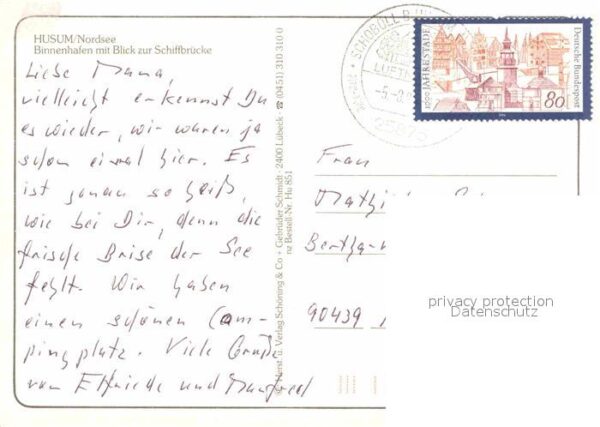 HUSUM/Nordsee
Binnenhafen mit Blick zur Schiffbrücke
Liebe Mama,
vielleicht erkennst Du
es wieder, wir waren ja
schon einmal hier. Es
ist genau so heiß,
wie bei Dir, denn die
frische Brise der See
fehlt. Wir haben
einen schönen Cam-
pingplatz. Viele Grüße
von Elfriede und Manfred
Schöning & Co + Gebrüder Schmidt · 2400 Lübeck · ☎ (0451) 310 310 0
Bestell-Nr. Hu 851
SCHOBÜLL B
LUFTK
25875
1000 JAHRE STADE
Deutsche Bundespost
80
Frau
90439
privacy protection
Datenschutz